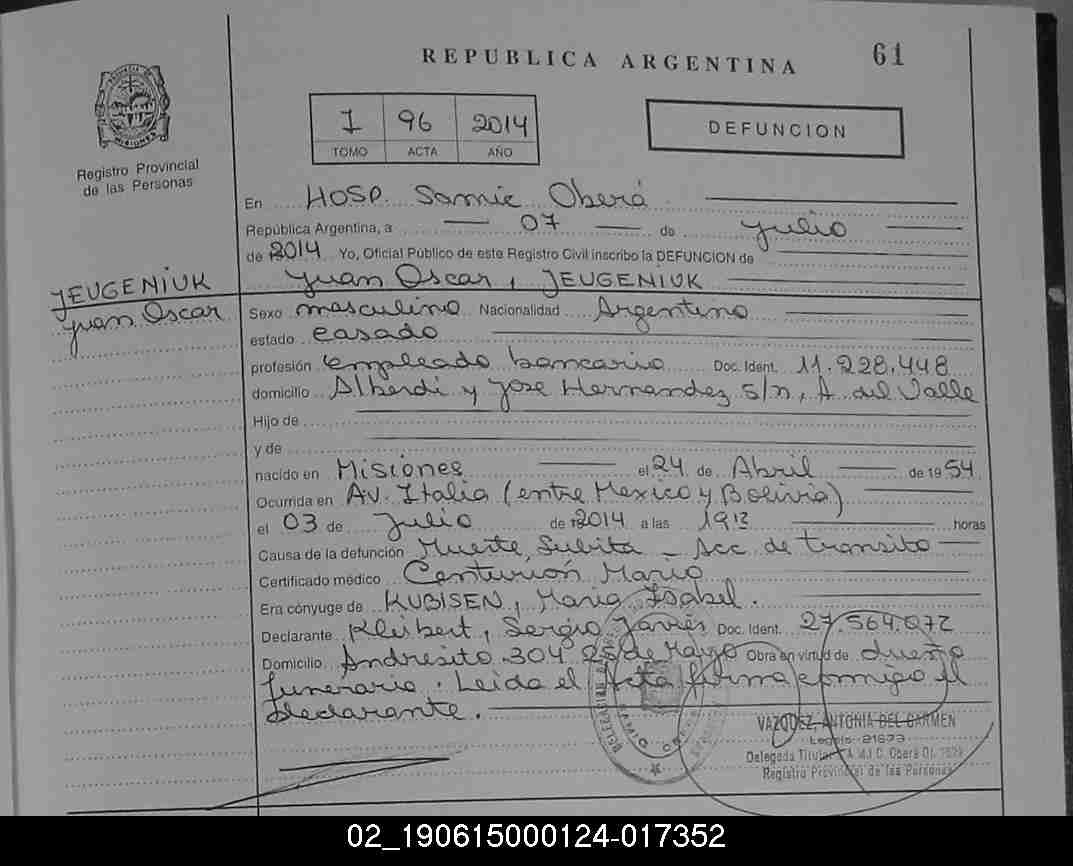 REPUBLICA ARGENTINA
61
PROVINCIA DE MISIONES
Registro Provincial
de las Personas
I 96 2014
TOMO ACTA AÑO
DEFUNCION
En HOSP. Samic Oberá
República Argentina, a 07 de Julio
de 2014 Yo, Oficial Público de este Registro Civil inscribo la DEFUNCION de
Juan Oscar, JEUGENIUK
JEUGENIUK
Juan Oscar
Sexo masculino Nacionalidad Argentino
estado casado
profesión empleado bancario Doc. Ident. 11.228.448
domicilio Alberdi y Jose Hernandez s/n, A. del Valle
Hijo de
y de
nacido en Misiones el 24 de Abril de 1954
Ocurrida en AV. Italia (entre Mexico y Bolivia)
el 03 de Julio de 2014 a las 1913 horas
Causa de la defunción Muerte Subita - Acc. de transito
Certificado médico Centurión Mario
Era cónyuge de KUBISEN, Maria Isabel.
Declarante Kleibert, Sergio Javier Doc. Ident. 27.564.072
Domicilio Andresito 304 25 de Mayo Obra en virtud de dueño
funeraria. Leida el Acta firma conmigo el
declarante.
VAZQUEZ, ANTONIA DEL CARMEN
Legajo 21673
Delegada Titular
Registro Provincial de las Personas
02_190615000124-017352